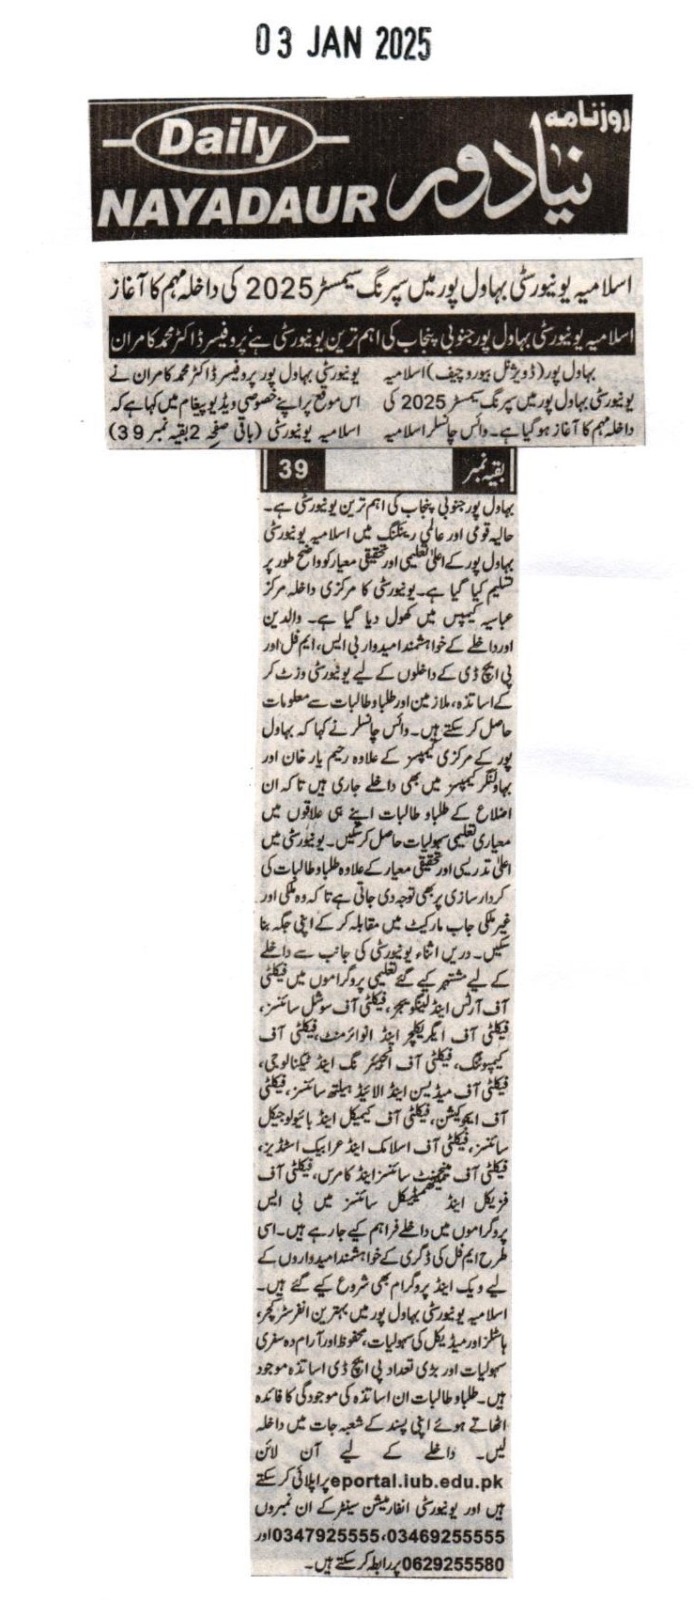 03 JAN 2025
Daily
NAYADAUR
روزنامہ
نیا دور
اسلامیہ یونیورسٹی بہاول پور میں سپرنگ سیمسٹر 2025 کی داخلہ مہم کا آغاز
اسلامیہ یونیورسٹی بہاول پور جنوبی پنجاب کی اہم ترین یونیورسٹی ہے، پروفیسر ڈاکٹر محمد کامران
بہاول پور (ڈویژنل بیورو چیف) اسلامیہ
یونیورسٹی بہاول پور میں سپرنگ سیمسٹر 2025 کی
داخلہ مہم کا آغاز ہو گیا ہے۔ وائس چانسلر اسلامیہ
یونیورسٹی بہاول پور پروفیسر ڈاکٹر محمد کامران نے
اس موقع پر اپنے خصوصی ویڈیو پیغام میں کہا ہے کہ
اسلامیہ یونیورسٹی (باقی صفحہ 2 بقیہ نمبر 39)
بقیہ نمبر 39
بہاول پور جنوبی پنجاب کی اہم ترین یونیورسٹی ہے۔
حالیہ قومی اور عالمی رینکنگ میں اسلامیہ یونیورسٹی
بہاول پور کے اعلیٰ تعلیمی اور تحقیقی معیار کو واضح طور پر
تسلیم کیا گیا ہے۔ یونیورسٹی کا مرکزی داخلہ مرکز
عباسیہ کیمپس میں کھول دیا گیا ہے۔ والدین
اور داخلے کے خواہشمند امیدوار بی ایس، ایم فل اور
پی ایچ ڈی کے داخلوں کے لیے یونیورسٹی وزٹ کر
کے اساتذہ، ملازمین اور طلباو طالبات سے معلومات
حاصل کر سکتے ہیں۔ وائس چانسلر نے کہا کہ بہاول
پور کے مرکزی کیمپسز کے علاوہ رحیم یار خان اور
بہاولنگر کیمپسز میں بھی داخلے جاری ہیں تاکہ ان
اضلاع کے طلباو طالبات اپنے ہی علاقوں میں
معیاری تعلیمی سہولیات حاصل کر سکیں۔ یونیورسٹی میں
اعلیٰ تدریسی اور تحقیقی معیار کے علاوہ طلباو طالبات کی
کردار سازی پر بھی توجہ دی جاتی ہے تاکہ وہ ملکی اور
غیر ملکی جاب مارکیٹ میں مقابلہ کر کے اپنی جگہ بنا
سکیں۔ دریں اثناء یونیورسٹی کی جانب سے داخلے
کے لیے مشتہر کیے گئے تعلیمی پروگراموں میں فیکلٹی
آف آرٹس اینڈ لینگویجز، فیکلٹی آف سوشل سائنسز،
فیکلٹی آف ایگریکلچر اینڈ انوائرمنٹ، فیکلٹی آف
کمپیوٹنگ، فیکلٹی آف انجینئرنگ اینڈ ٹیکنالوجی،
فیکلٹی آف میڈیسن اینڈ الائیڈ ہیلتھ سائنسز، فیکلٹی
آف ایجوکیشن، فیکلٹی آف کیمیکل اینڈ بائیولوجیکل
سائنسز، فیکلٹی آف اسلامک اینڈ عرابیک اسٹڈیز،
فیکلٹی آف مینجمنٹ سائنسز اینڈ کامرس، فیکلٹی آف
فزیکل اینڈ میتھمیٹیکل سائنسز میں بی ایس
پروگراموں میں داخلے فراہم کیے جارہے ہیں۔ اسی
طرح ایم فل کی ڈگری کے خواہشمند امیدواروں کے
لیے ویک اینڈ پروگرام بھی شروع کیے گئے ہیں۔
اسلامیہ یونیورسٹی بہاول پور میں بہترین انفرسٹرکچر،
ہاسٹلز اور میڈیکل کی سہولیات، محفوظ اور آرام دہ سفری
سہولیات اور بڑی تعداد پی ایچ ڈی اساتذہ موجود
ہیں۔ طلباو طالبات ان اساتذہ کی موجودگی کا فائدہ
اٹھاتے ہوئے اپنی پسند کے شعبہ جات میں داخلہ
لیں۔ داخلے کے لیے آن لائن
eportal.iub.edu.pk پر اپلائی کر سکتے
ہیں اور یونیورسٹی انفارمیشن سینٹر کے ان نمبروں
03469255555، 0347925555 اور
0629255580 پر رابطہ کر سکتے ہیں۔